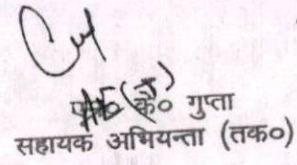 के० गुप्ता
सहायक अभियन्ता (तक०)